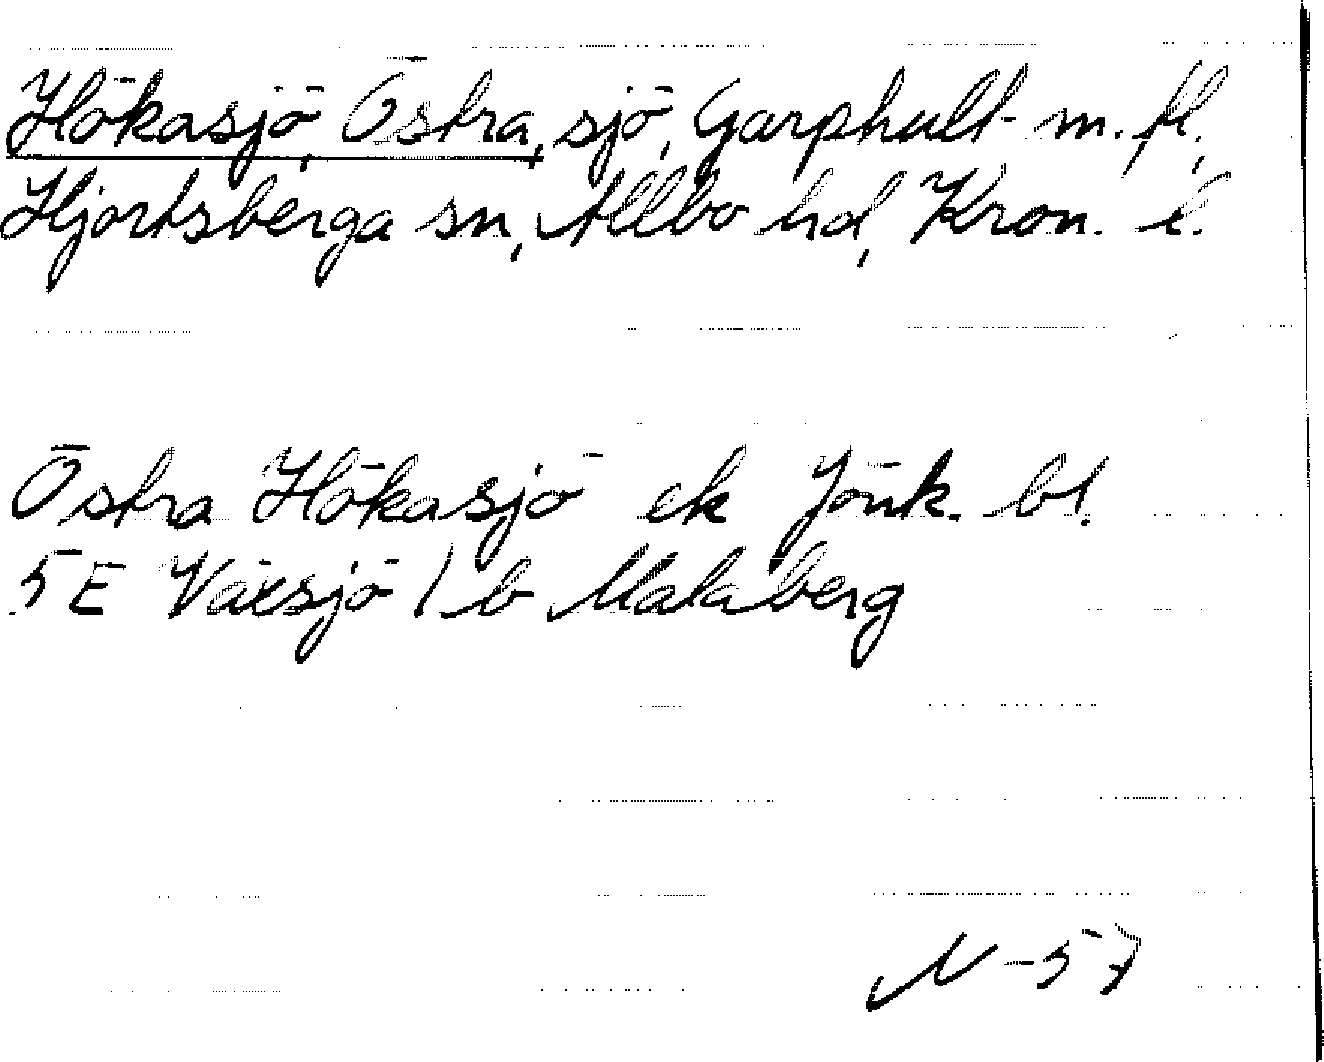 Hökasjö, Östra, sjö, Garphult m. fl.,
Hjortsberga sn, Allbo hd, Kron. l.
Östra Hökasjö ek Jönk. bl.
5E Växsjö 1 b Malaberg
N-57